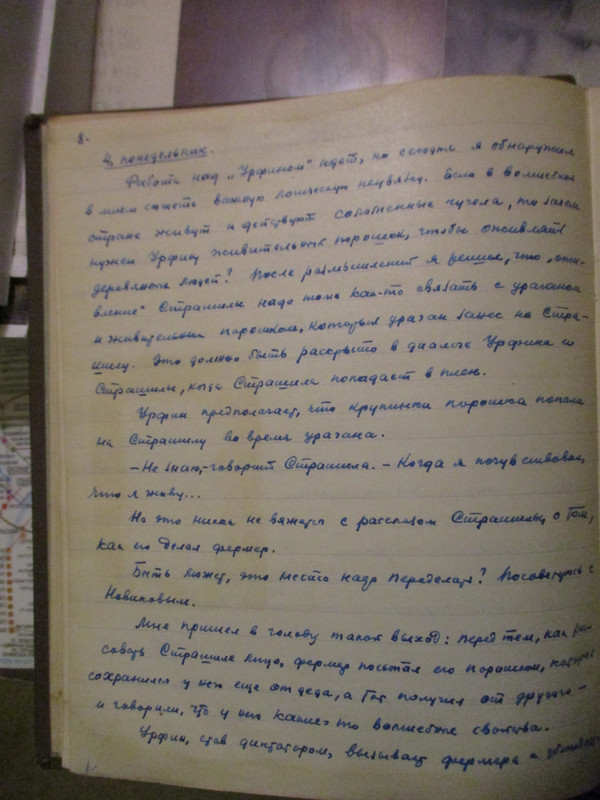 8.
4, понедельник.
Работа над „Урфином" идет, но сегодня я обнаружил
в моем сюжете важную логическую неувязку. Если в Волшебной
стране живут и действуют соломенные чучела, то зачем
нужен Урфину живительный порошок, чтобы оживлять
деревянных людей? После размышлений я решил, что „ожи-
вление" Страшилы надо тоже как-то связать с ураганом
и живительным порошком, который ураган занес на Стра-
шилу. Это должно быть раскрыто в диалоге Урфина и
Страшилы, когда Страшила попадает в плен.
Урфин предполагает, что крупинки порошка попали
на Страшилу во время урагана.
– Не знаю, – говорит Страшила. – Когда я почувствовал,
что я живу...
Но это никак не вяжется с рассказом Страшилы о том,
как его делал фермер.
Быть может, это место надо переделать? Посоветуюсь с
Новиковым.
Мне пришел в голову такой выход: перед тем, как ри-
совать Страшиле лицо, фермер посыпал его порошком, который
сохранился у него еще от деда, а тот получил от другого –
и говорили, что у него какие-то волшебные свойства.
Урфин, став диктатором, вызывает фермера и